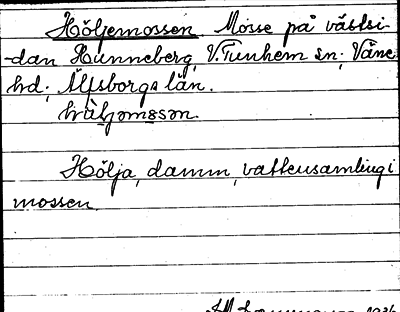 Höljemossen Mosse på västsi-
dan Hunneberg, V. Tunhem sn; Väne
hd; Älfsborgs län.
Hölja, damm, vattensamling i
mossen.
1936